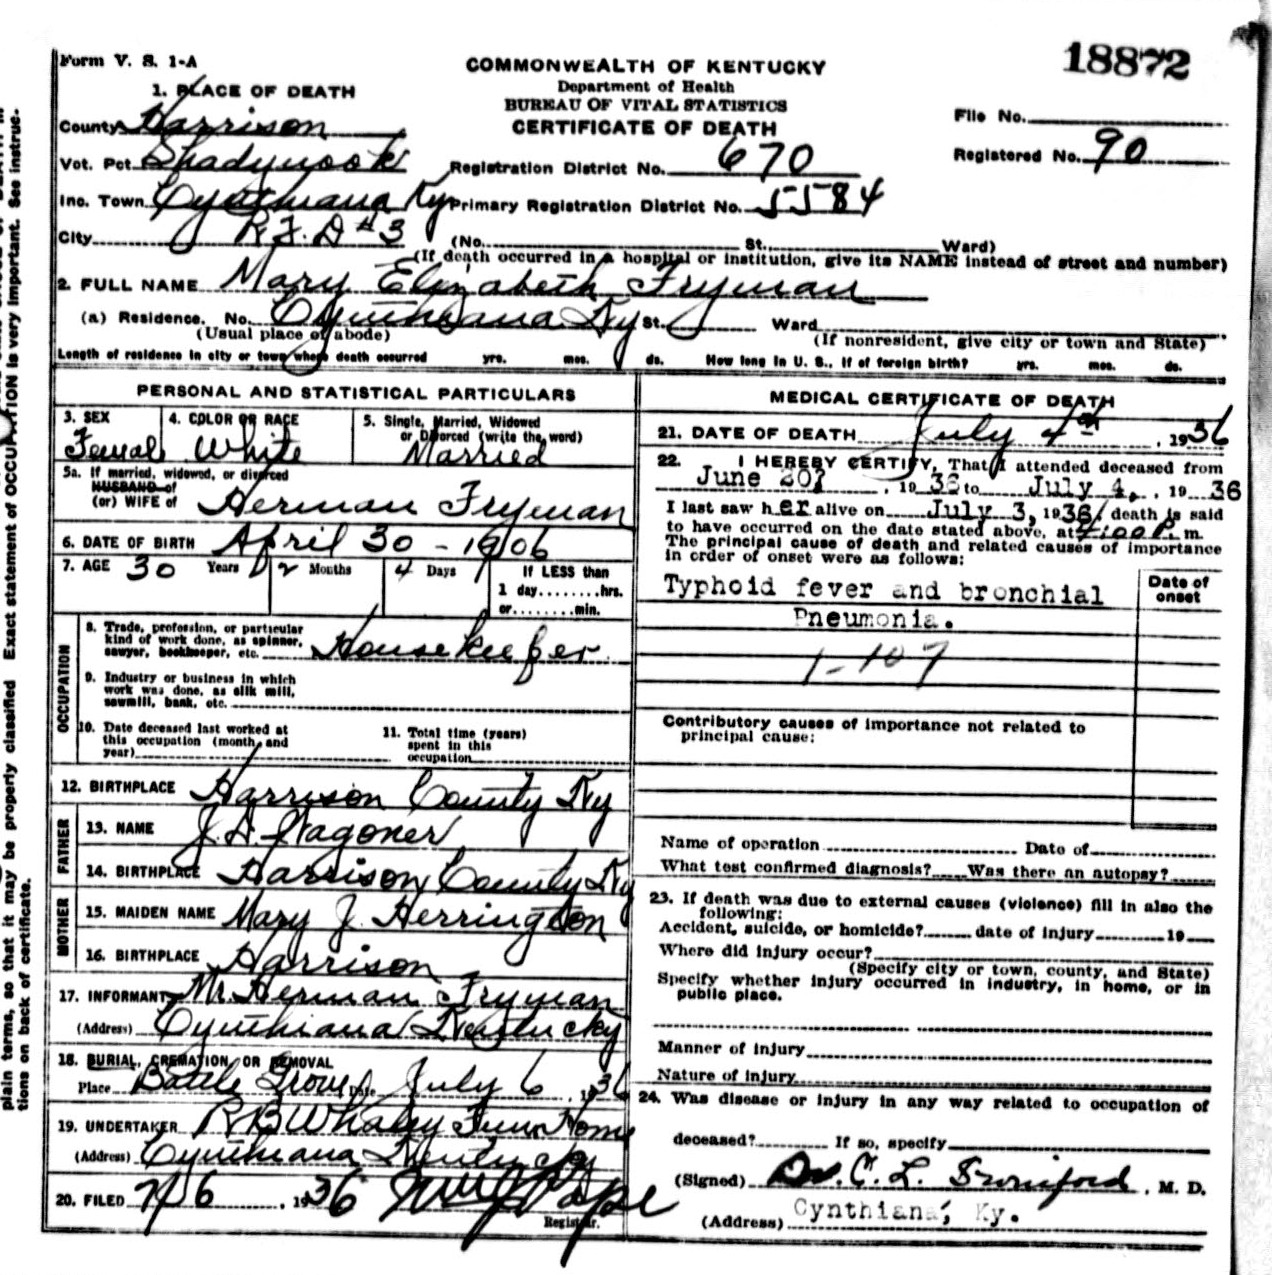 18872
Form V. S. 1-A
COMMONWEALTH OF KENTUCKY
Department of Health
BUREAU OF VITAL STATISTICS
CERTIFICATE OF DEATH
1. PLACE OF DEATH
County Harrison
File No.
Vot. Pct. Shadynook
Registration District No. 670
Registered No. 90
Inc. Town Cynthiana Ky
Primary Registration District No. 5584
City R.F.D #3 (No. St. Ward)
(If death occurred in a hospital or institution, give its NAME instead of street and number)
2. FULL NAME Mary Elizabeth Fryman
(a) Residence. No. Cynthiana Ky St. Ward
(Usual place of abode) (If nonresident, give city or town and State)
Length of residence in city or town where death occurred yrs. mos. ds. How long in U. S., if of foreign birth? yrs. mos. ds.
PERSONAL AND STATISTICAL PARTICULARS
3. SEX 4. COLOR OR RACE 5. Single, Married, Widowed
or Divorced (write the word)
Female White Married
5a. If married, widowed, or divorced
HUSBAND of
(or) WIFE of Herman Fryman
6. DATE OF BIRTH April 30 - 1906
7. AGE 30 Years 2 Months 4 Days If LESS than
1 day........hrs.
or........min.
OCCUPATION
8. Trade, profession, or particular
kind of work done, as spinner,
sawyer, bookkeeper, etc. Housekeeper
9. Industry or business in which
work was done, as silk mill,
sawmill, bank, etc.
10. Date deceased last worked at
this occupation (month and
year)
11. Total time (years)
spent in this
occupation
12. BIRTHPLACE Harrison County Ky
FATHER
13. NAME J. D. Wagoner
14. BIRTHPLACE Harrison County Ky
MOTHER
15. MAIDEN NAME Mary J. Herrington
16. BIRTHPLACE Harrison
17. INFORMANT Mr. Herman Fryman
(Address) Cynthiana Kentucky
18. BURIAL, CREMATION, OR REMOVAL
Place Battle Grove Date July 6, 1936
19. UNDERTAKER R B Whaley Funr Home
(Address) Cynthiana Kentucky
20. FILED 7/6 1936
Registrar.
MEDICAL CERTIFICATE OF DEATH
21. DATE OF DEATH July 4th, 1936
22. I HEREBY CERTIFY, That I attended deceased from
June 20, 1936 to July 4, 1936
I last saw her alive on July 3, 1936 death is said
to have occurred on the date stated above, at 4:00 P. m.
The principal cause of death and related causes of importance
in order of onset were as follows:
Date of
onset
Typhoid fever and bronchial
Pneumonia.
1-107
Contributory causes of importance not related to
principal cause:
Name of operation Date of
What test confirmed diagnosis? Was there an autopsy?
23. If death was due to external causes (violence) fill in also the
following:
Accident, suicide, or homicide? date of injury 19
Where did injury occur?
(Specify city or town, county, and State)
Specify whether injury occurred in industry, in home, or in
public place.
Manner of injury
Nature of injury
24. Was disease or injury in any way related to occupation of
deceased? If so, specify
(Signed) Dr. C. L. Swinford, M. D.
(Address) Cynthiana, Ky.
plain terms, so that it may be properly classified Exact statement of OCCUPATION is very important. See instruc-
tions on back of certificate.